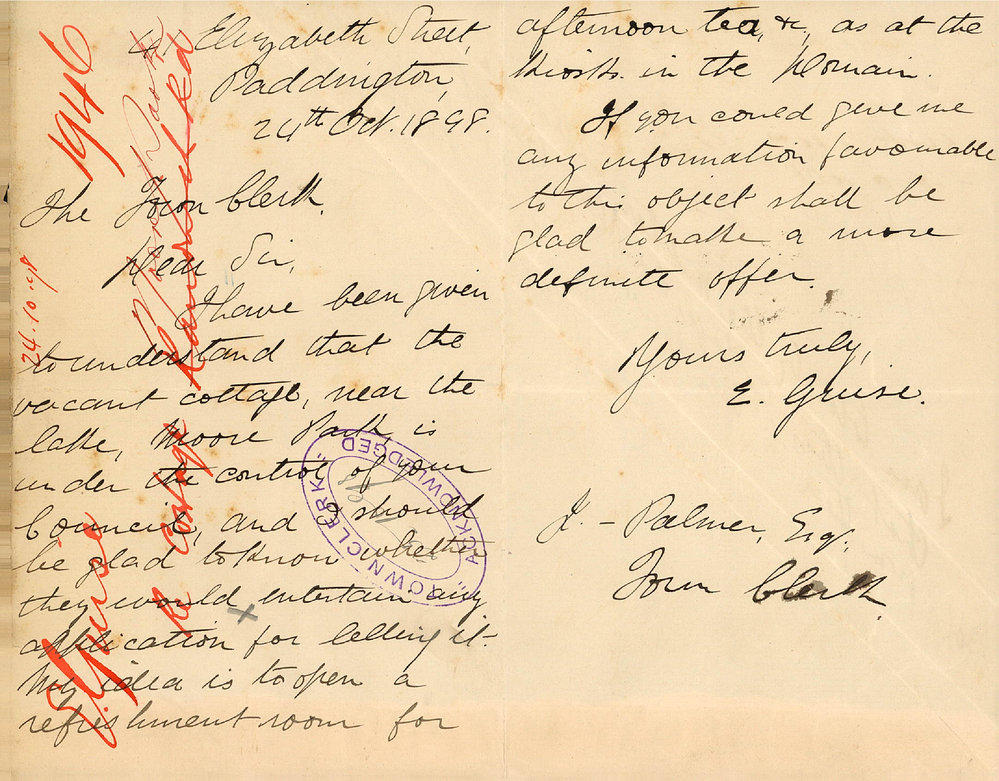 Elizabeth Street,
Paddington,
24th Oct. 1898.
The Town Clerk.
Dear Sir,
I have been given
to understand that the
vacant cottage, near the
lake, Moore Park is
under the control of your
Council, and I should
be glad to know whether
they would entertain any
application for letting it.
My idea is to open a
refreshment room for
afternoon tea, &c, as at the
Kiosk in the Domain.
If you could give me
any information favourable
to this object shall be
glad to make a more
definite offer.
Yours truly,
E. Gruise.
J. - Palmer, Esq.
Town Clerk
1946
24.10.98
E. Gruise
re cottage
TOWN CLERK
ACKNOWLEDGED